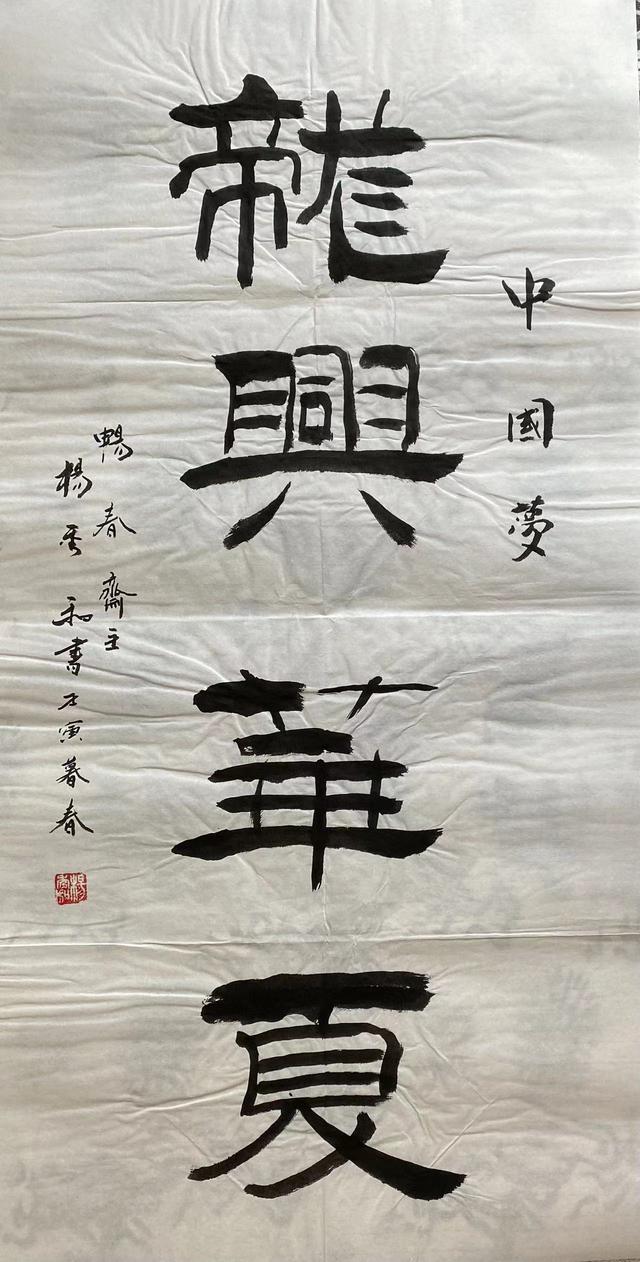 中國夢
龍興華夏
暢春齋主
楊秀和書壬寅暮春